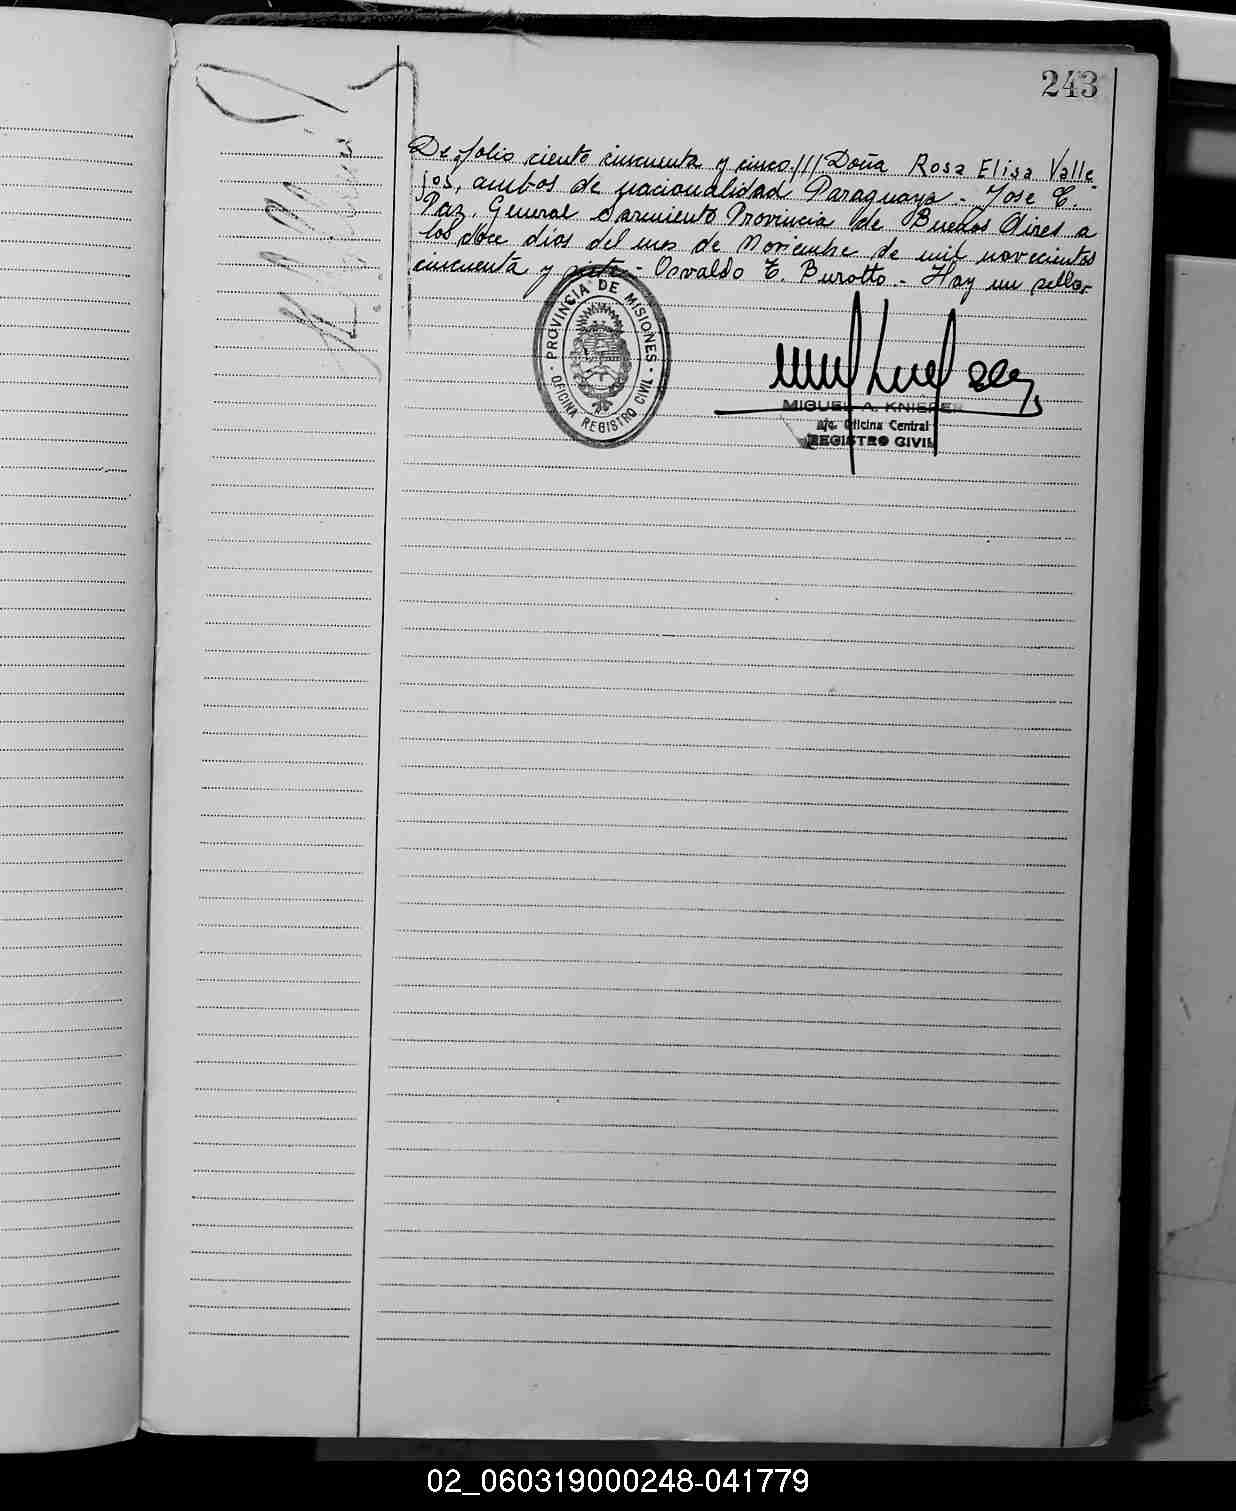 243
De folio ciento cincuenta y cinco./// Doña Rosa Elisa Valle-
jos, ambos de nacionalidad Paraguaya - Jose C.
Paz, General Sarmiento Provincia de Buenos Aires a
los doce dias del mes de Noviembre de mil novecientos
cincuenta y siete - Osvaldo E. Burotto. - Hay un sello.-
PROVINCIA DE MISIONES
OFICINA REGISTRO CIVIL
MIGUEL A. KNIEPER
a/c. Oficina Central
REGISTRO CIVIL
02_060319000248-041779